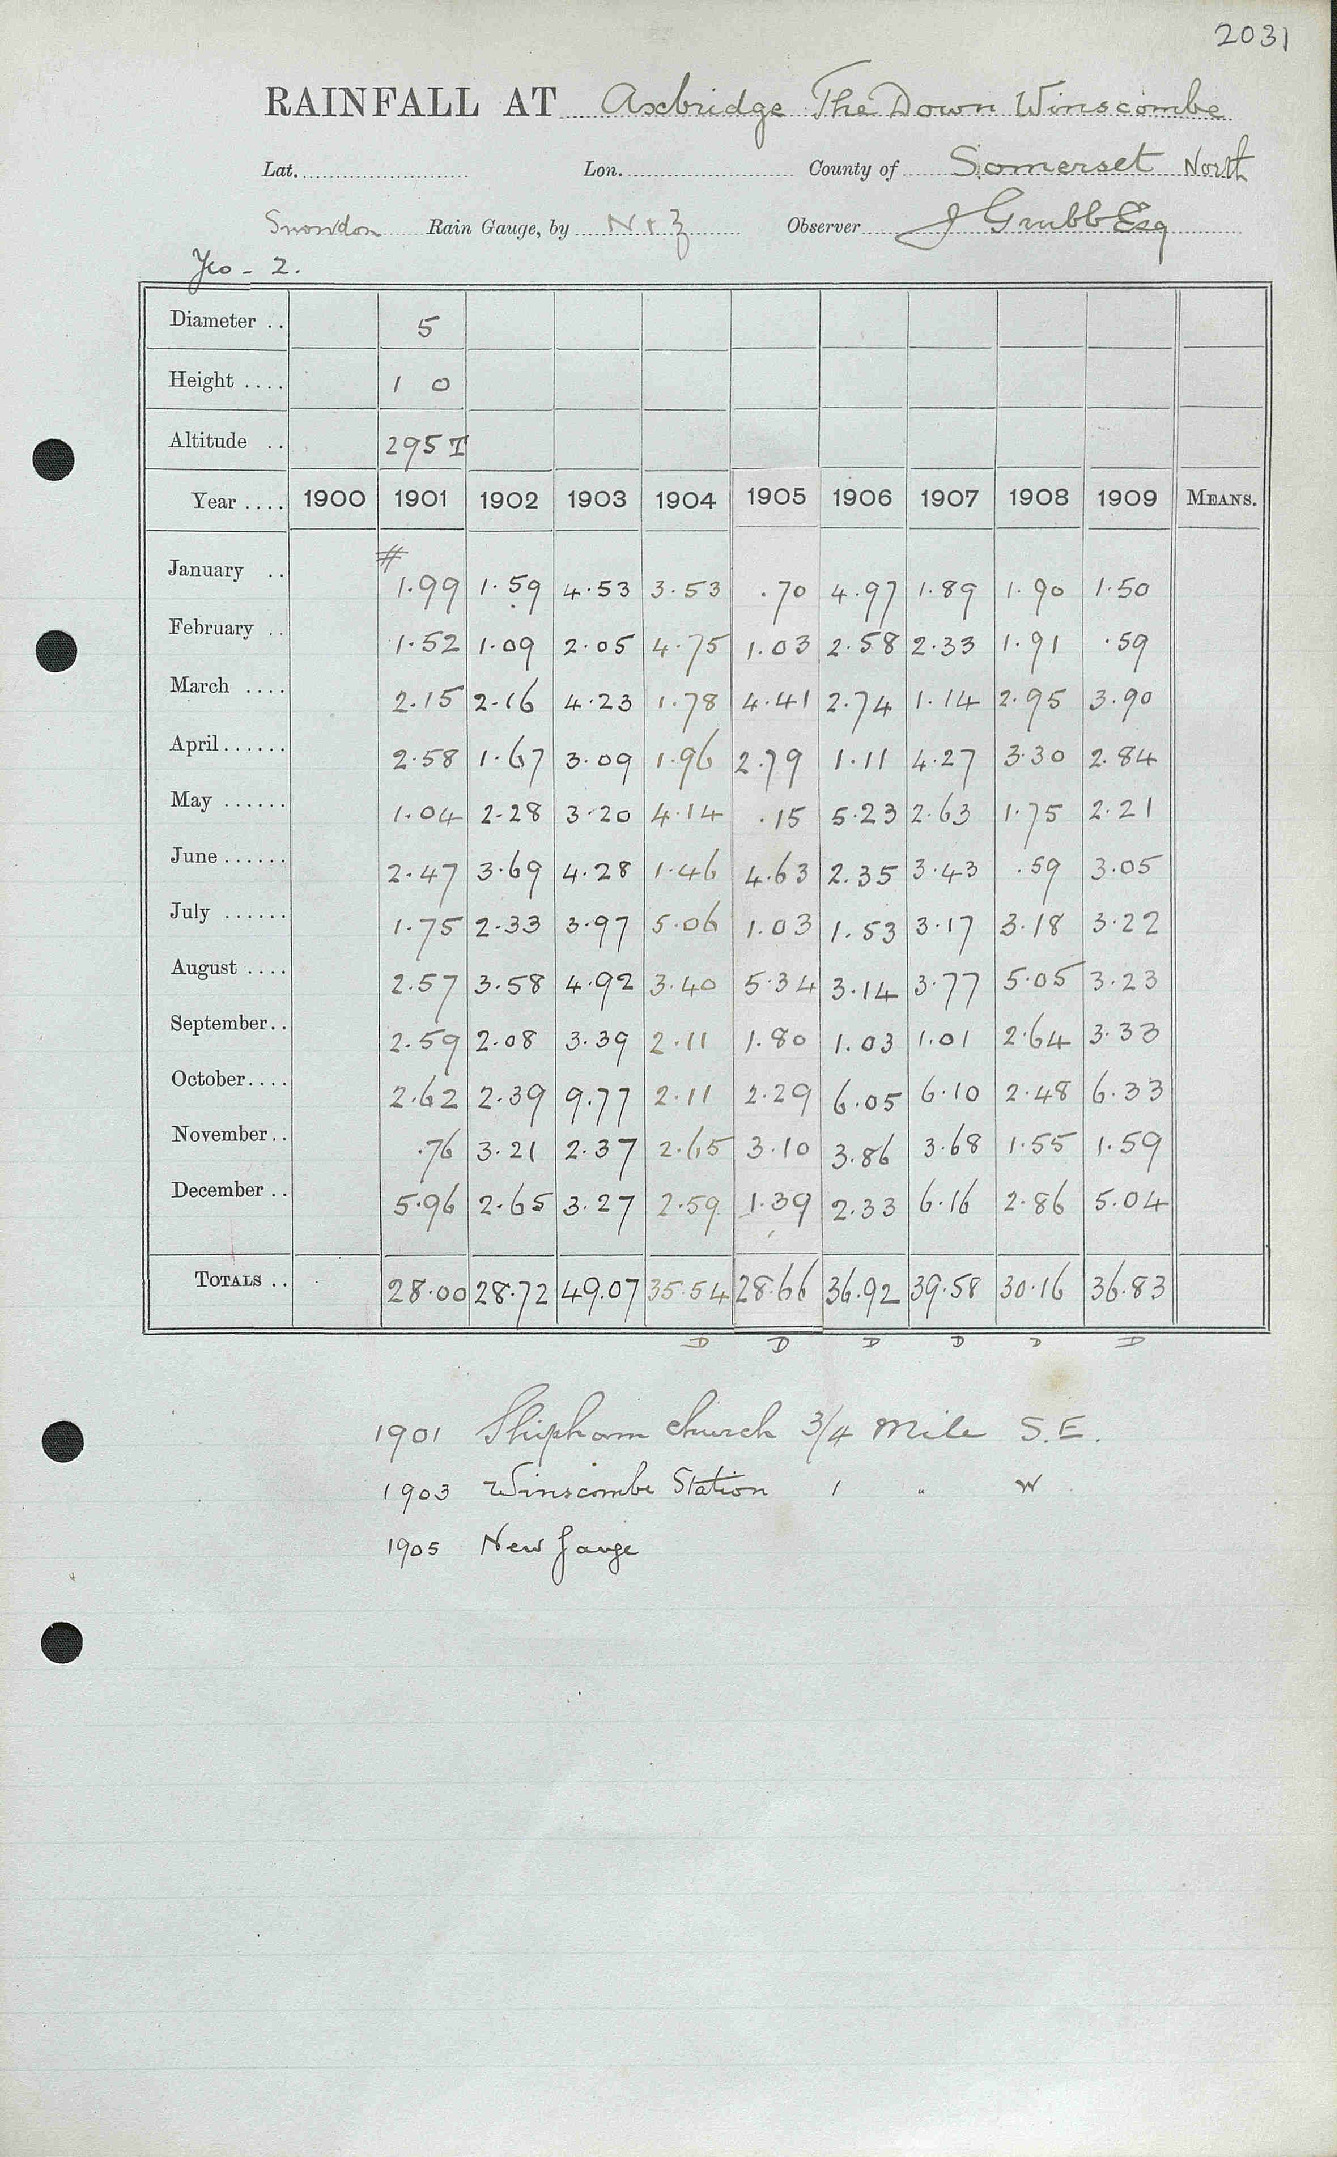 2031
RAINFALL AT Axbridge The Down Winscombe
Lat. Lon. County of Somerset North
Snowdon Rain Gauge, by N & Z Observer J Grubb Esq
Yeo - 2.
Diameter .. 5
Height .... 1 0
Altitude .. 295 T
Year .... 1900 1901 1902 1903 1904 1905 1906 1907 1908 1909 MEANS.
January .. # 1.99 1.59 4.53 3.53 .70 4.97 1.89 1.90 1.50
February .. 1.52 1.09 2.05 4.75 1.03 2.58 2.33 1.91 .59
March .... 2.15 2.16 4.23 1.78 4.41 2.74 1.14 2.95 3.90
April...... 2.58 1.67 3.09 1.96 2.79 1.11 4.27 3.30 2.84
May ...... 1.04 2.28 3.20 4.14 .15 5.23 2.63 1.75 2.21
June...... 2.47 3.69 4.28 1.46 4.63 2.35 3.43 .59 3.05
July ...... 1.75 2.33 3.97 5.06 1.03 1.53 3.17 3.18 3.22
August .... 2.57 3.58 4.92 3.40 5.34 3.14 3.77 5.05 3.23
September.. 2.59 2.08 3.39 2.11 1.80 1.03 1.01 2.64 3.33
October.... 2.62 2.39 9.77 2.11 2.29 6.05 6.10 2.48 6.33
November.. .76 3.21 2.37 2.65 3.10 3.86 3.68 1.55 1.59
December .. 5.96 2.65 3.27 2.59 1.39 2.33 6.16 2.86 5.04
TOTALS .. 28.00 28.72 49.07 35.54 28.66 36.92 39.58 30.16 36.83
D D D D D D
1901 Shipham church 3/4 Mile S.E.
1903 Winscombe Station 1 " W
1905 New Gauge